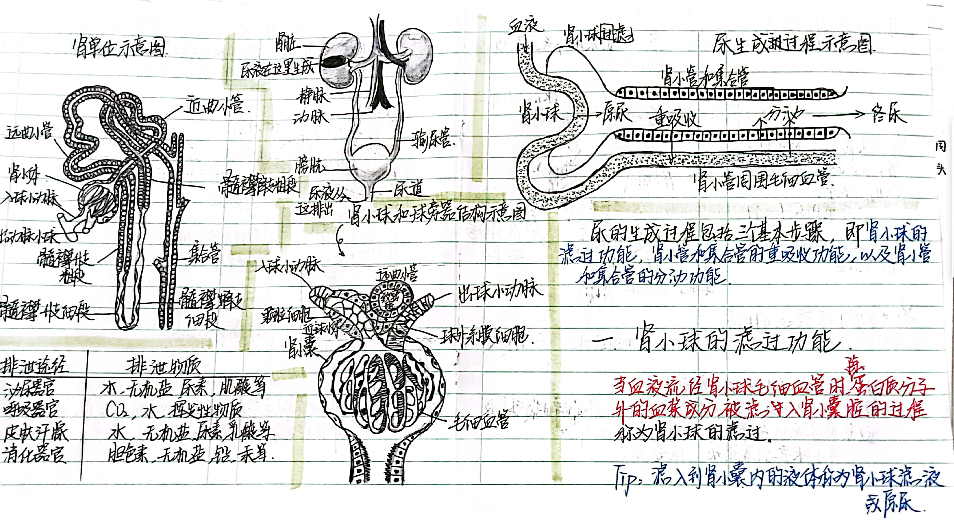 肾单位示意图
近曲小管
远曲小管
肾小球
入球小动脉
出球小动脉
髓襻升支粗段
髓襻降支粗段
集合管
髓襻升支细段
髓襻降支细段
肾脏
尿液在这里生成
静脉
动脉
输尿管
膀胱
尿液从这排出
尿道
血液
肾小球滤过
尿生成的过程示意图
肾小管和集合管
肾小球
原尿
重吸收
分泌
终尿
肾小管周围毛细血管
肾小球和球旁器结构示意图
入球小动脉
远曲小管
出球小动脉
球旁细胞
球外系膜细胞
肾囊
毛细血管
尿的生成过程包括三个基本步骤,即肾小球的
滤过功能,肾小管和集合管的重吸收功能,以及肾小管
和集合管的分泌功能.
一 肾小球的滤过功能.
当血液流经肾小球毛细血管时,蛋白质分子
外的血浆成分被滤过入肾小囊腔的过程
称为肾小球的滤过。
Tip:滤入到肾小囊内的液体称为肾小球滤液
或原尿.
排泄途径 排泄物质
泌尿器官 水.无机盐.尿素,肌酸等
呼吸器官 CO₂,水,挥发性物质
皮肤汗腺 水,无机盐,尿素,乳酸等
消化器官 胆色素,无机盐,铅,汞等.